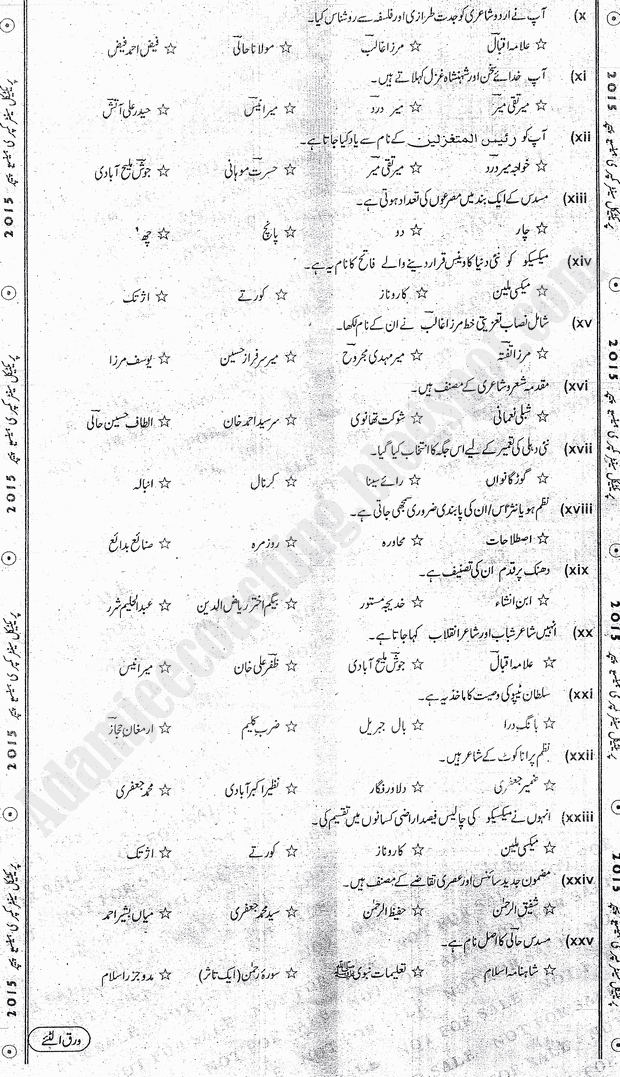 (x آپ نے اردو شاعری کو جدت طرازی اور فلسفہ سے روشناس کیا۔
☆ علامہ اقبالؔ ☆ مرزا غالبؔ ☆ مولانا حالیؔ ☆ فیض احمد فیضؔ
(xi آپ خدائے سخن اور شہنشاہ غزل کہلاتے ہیں۔
☆ میر تقی میرؔ ☆ میر دردؔ ☆ میر انیسؔ ☆ حیدر علی آتشؔ
(xii آپ کو رئیس المتغزلین کے نام سے یاد کیا جاتا ہے۔
☆ خواجہ میر دردؔ ☆ میر تقی میرؔ ☆ حسرتؔ موہانی ☆ جوشؔ ملیح آبادی
(xiii مسدس کے ایک بند میں مصرعوں کی تعداد ہوتی ہے۔
☆ چار ☆ دو ☆ پانچ ☆ چھ
(xiv میکسیکو کو نئی دنیا کا وینس قرار دینے والے فاتح کا نام یہ ہے۔
☆ میکسی ملین ☆ کاروناز ☆ کورتے ☆ اژتک
(xv شامل نصاب تعزیتی خط مرزا غالبؔ نے ان کے نام لکھا۔
☆ مرزا تفتہؔ ☆ میر مہدی مجروحؔ ☆ میر سرفراز حسین ☆ یوسف مرزا
(xvi مقدمہ شعر و شاعری کے مصنف ہیں۔
☆ شبلی نعمانی ☆ شوکت تھانوی ☆ سر سید احمد خان ☆ الطاف حسین حالیؔ
(xvii نئی دہلی کی تعمیر کے لیے اس جگہ کا انتخاب کیا گیا۔
☆ گوڑگانواں ☆ رائے سینا ☆ کرنال ☆ انبالہ
(xviii نظم ہو یا نثر اس/ان کی پابندی ضروری سمجھی جاتی ہے۔
☆ اصطلاحات ☆ محاورہ ☆ روزمرہ ☆ صنائع بدائع
(xix دھنک پر قدم ان کی تصنیف ہے۔
☆ ابن انشاء ☆ خدیجہ مستور ☆ بیگم اختر ریاض الدین ☆ عبدالحلیم شرر
(xx انہیں شاعر شباب اور شاعر انقلاب کہا جاتا ہے۔
☆ علامہ اقبالؔ ☆ جوشؔ ملیح آبادی ☆ ظفر علی خان ☆ میر انیسؔ
(xxi سلطان ٹیپو کی وصیت کا ماخذ یہ ہے۔
☆ بانگ درا ☆ بال جبریل ☆ ضرب کلیم ☆ ارمغان حجاز
(xxii نظم پرانا کوٹ کے شاعر ہیں۔
☆ ضمیر جعفری ☆ دلاور فگار ☆ نظیر اکبر آبادی ☆ محمد جعفری
(xxiii انہوں نے میکسیکو کی چالیس فیصد اراضی کسانوں میں تقسیم کی۔
☆ میکسی ملین ☆ کاروناز ☆ کورتے ☆ اژتک
(xxiv مضمون جدید سائنس اور عصری تقاضے کے مصنف ہیں۔
☆ شفیق الرحمٰن ☆ حفیظ الرحمٰن ☆ سید محمد جعفری ☆ میاں بشیر احمد
(xxv مسدس حالیؔ کا اصل نام ہے۔
☆ شاہنامہ اسلام ☆ تعلیمات نبوی ﷺ ☆ سورۂ رحمٰن (ایک تاثر) ☆ مدوجزر اسلام
ورق الٹئے
2015
2015
2015
2015
2015
2015
2015
2015
Adamjeecoaching.blogspot.com